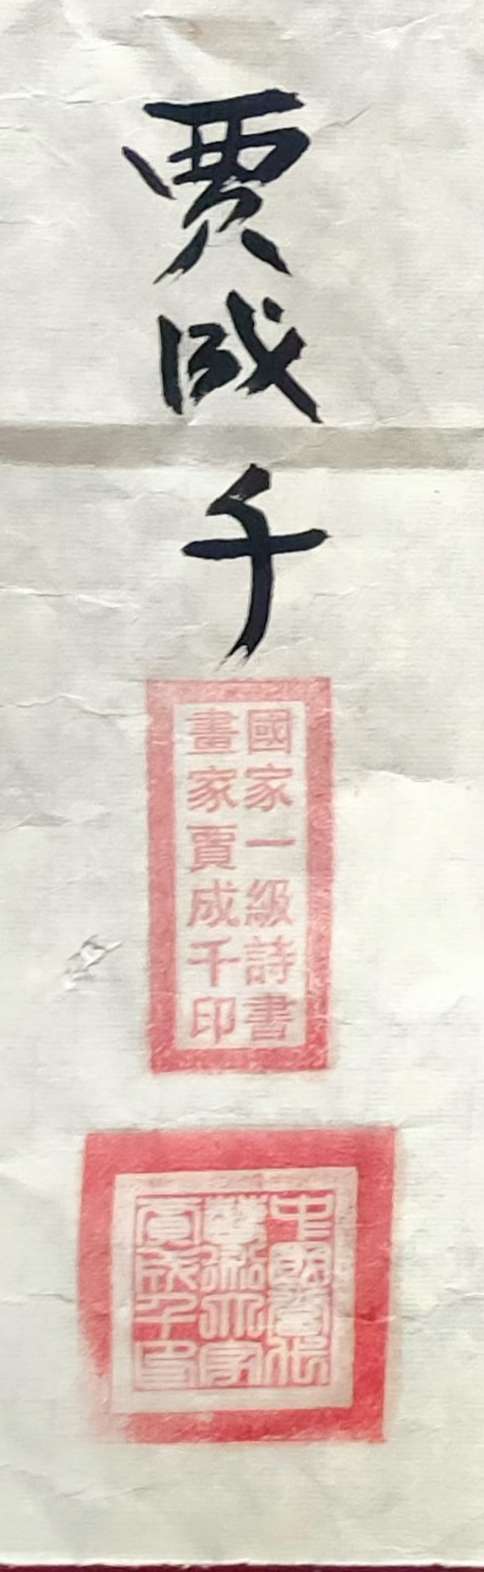 贾成千
國家一級詩書
畫家賈成千印
中國當代
藝術大家
賈成千印